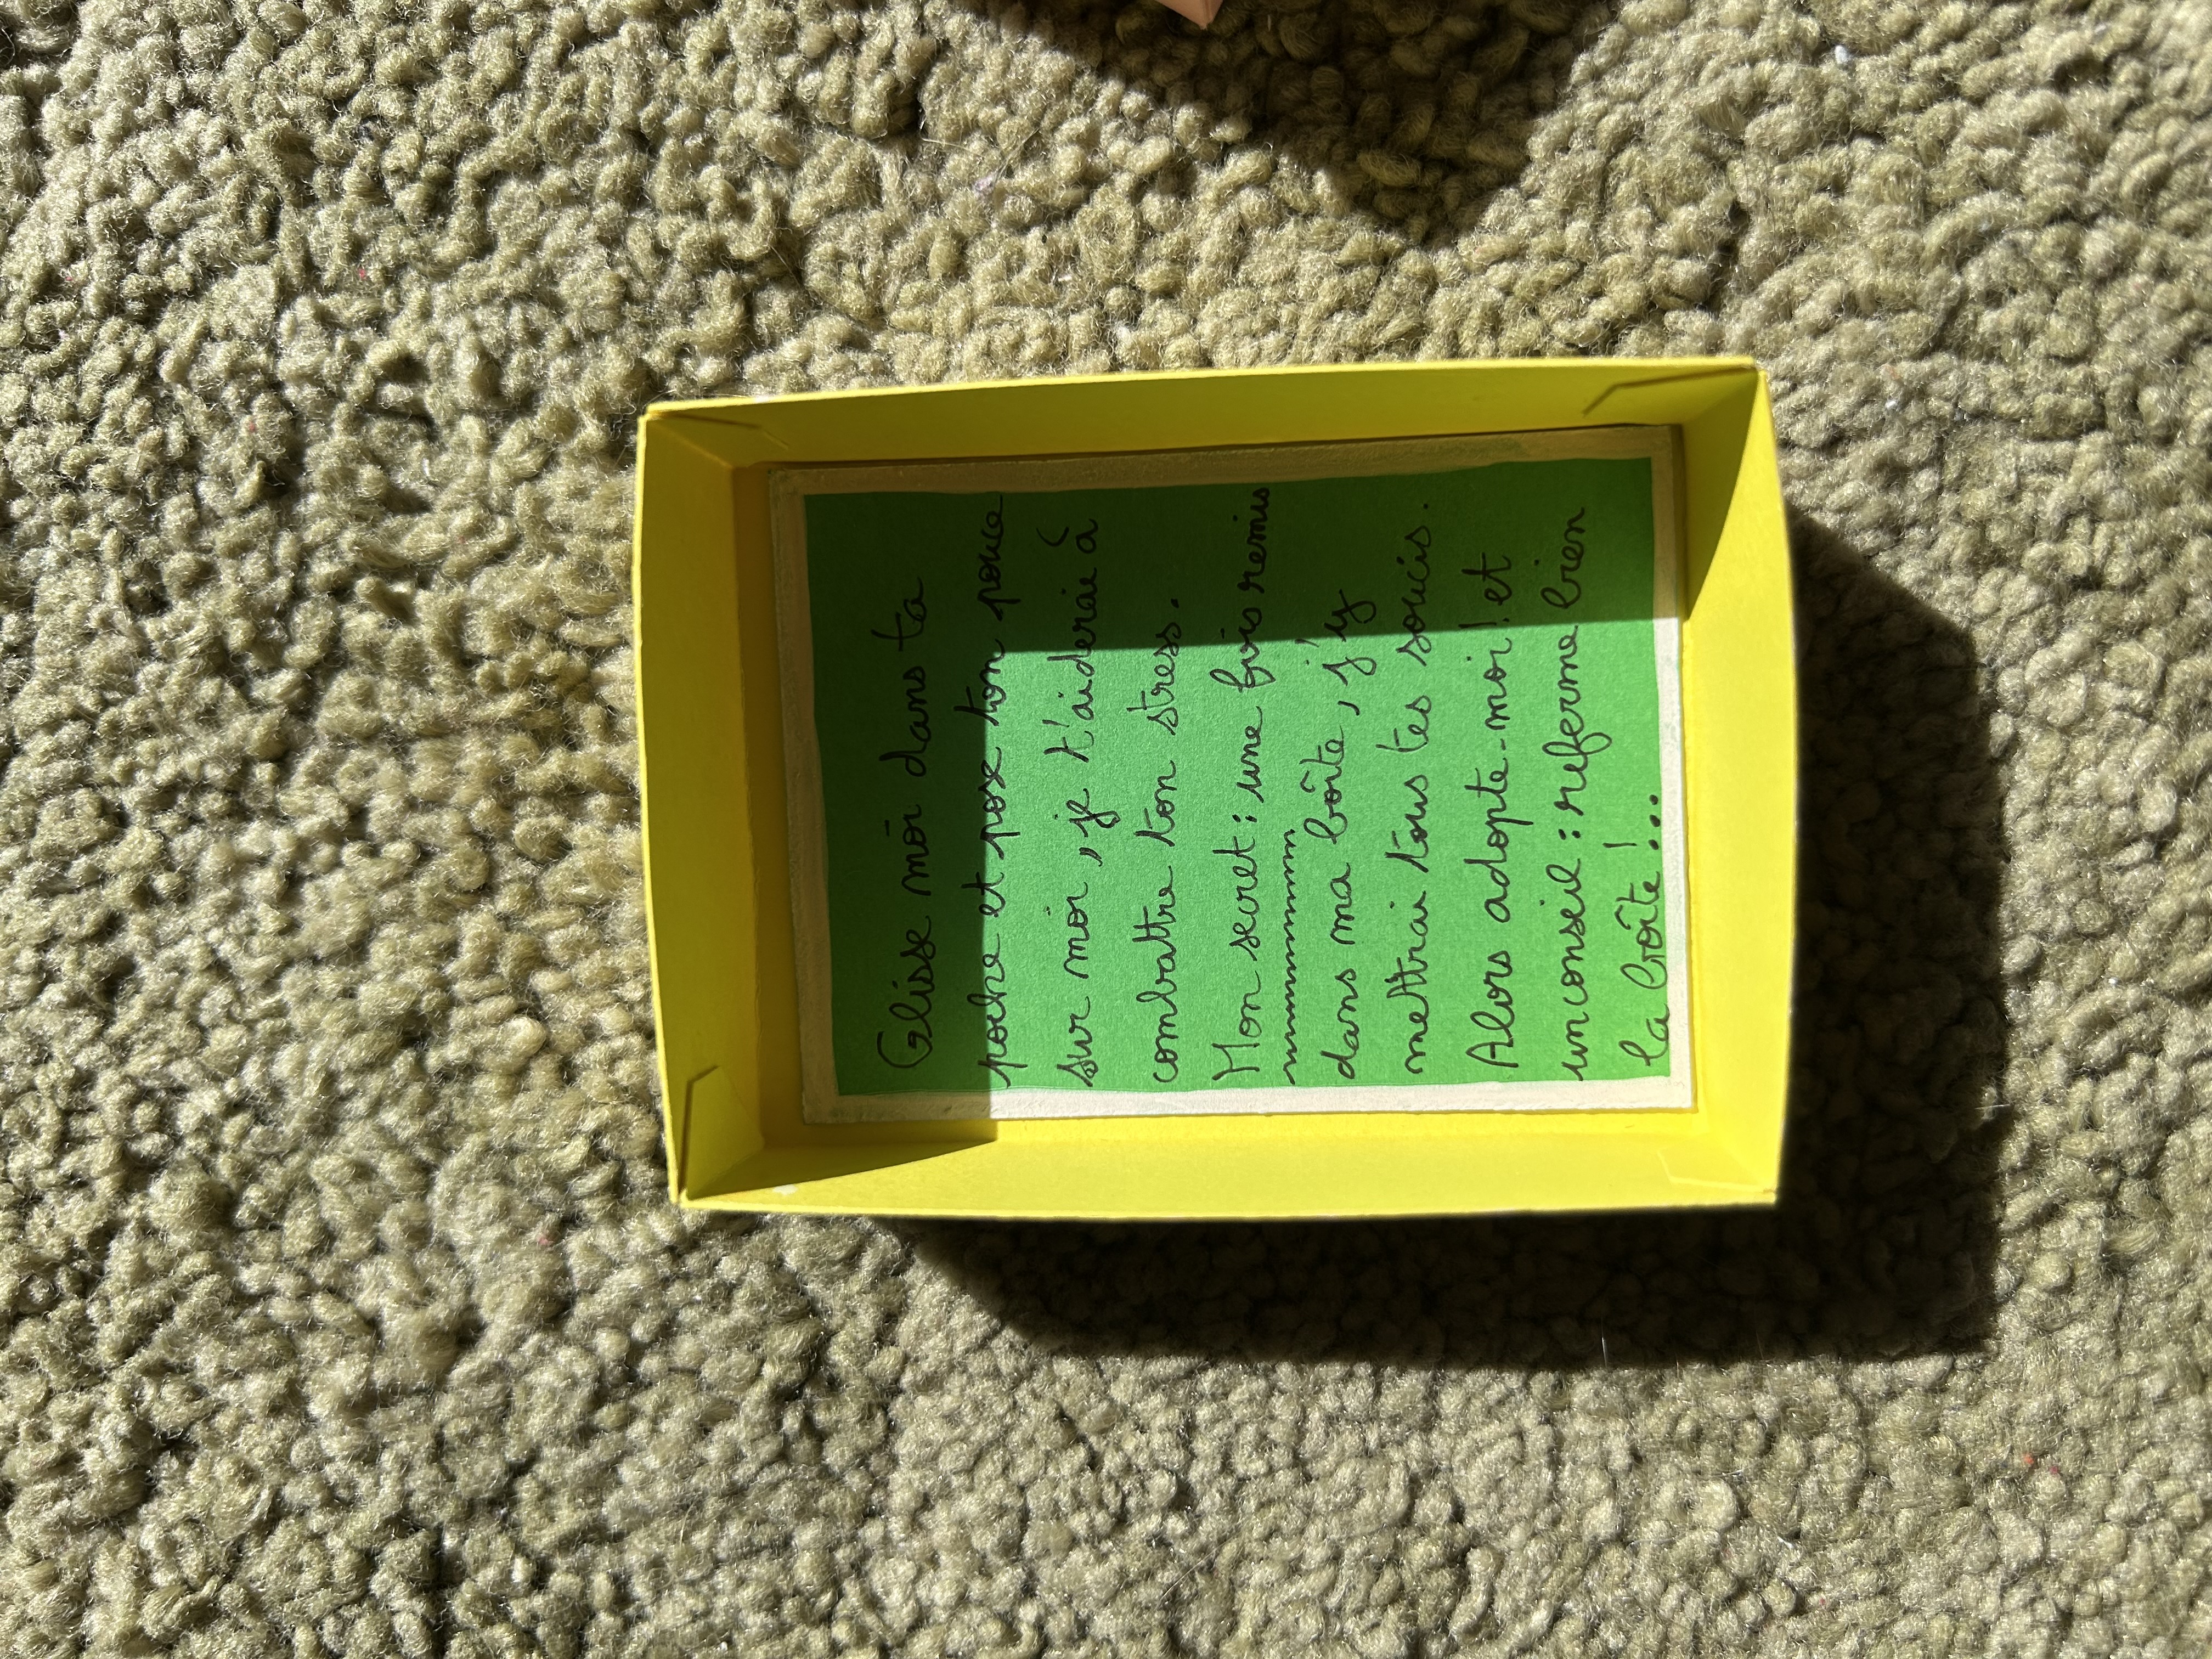 Glisse moi dans ta
poche et pose ton pouce
sur moi, je t'aiderai à
combattre ton stress.
Mon secret : une fois remis
dans ma boîte, j'y
mettrai tous tes soucis.
Alors adopte-moi ! et
un conseil : referme bien
la boîte !...